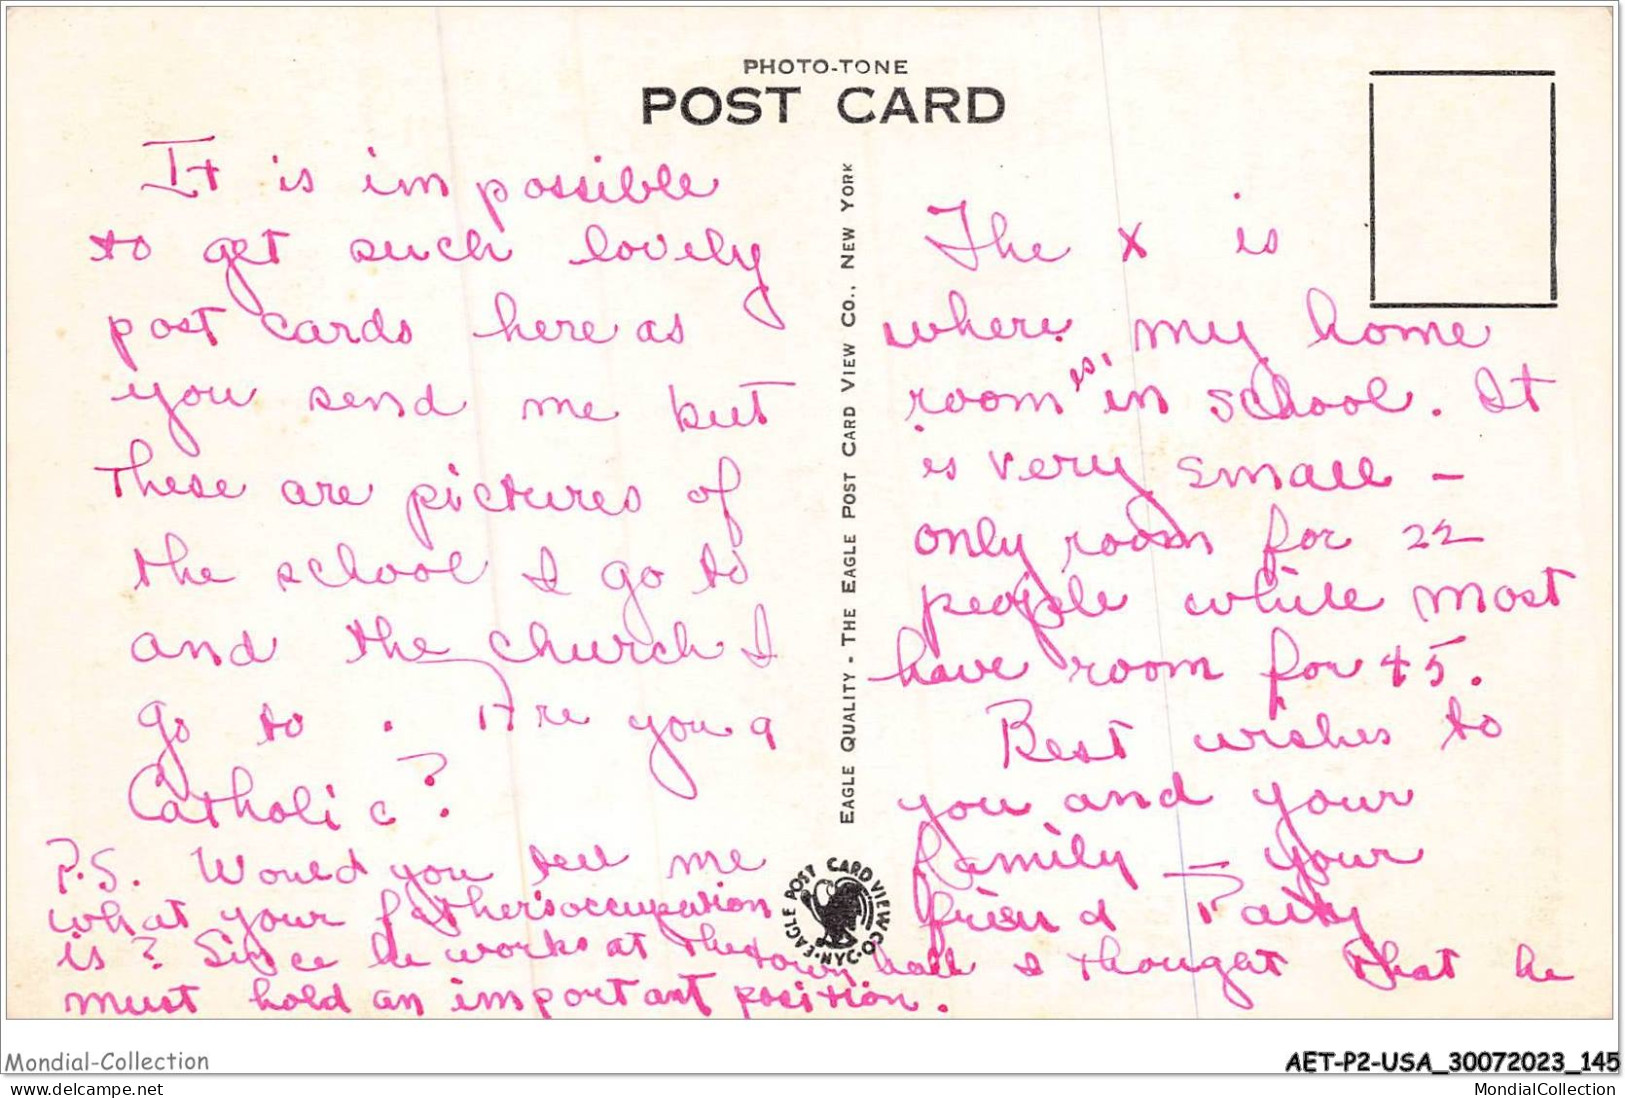 PHOTO-TONE
POST CARD
It is impossible
to get such lovely
post cards here as
you send me but
these are pictures of
the school I go to
and the church I
go to . Are you a
Catholic?
P.S. Would you tell me
what your father's occupation
is? Since he works at the town hall I thought that he
must hold an important position.
EAGLE QUALITY - THE EAGLE POST CARD VIEW CO., NEW YORK
EAGLE POST CARD VIEW CO. N.Y.C.
The x is
where my home
room is in school. It
is very small -
only room for 22
people while most
have room for 45.
Best wishes to
you and your
family - your
friend Patty
Mondial-Collection
AET-P2-USA_30072023_145
www.delcampe.net
MondialCollection